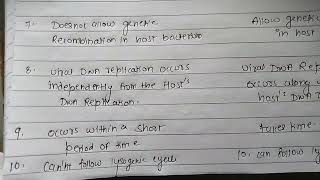 7. Does not allow genetic
Recombination in host bacterium
Allow genetic
in host
8. viral DNA replication occurs
independently from the Host's
DNA Replication.
viral DNA Rep
occurs along
host's DNA
9. occurs within a short
period of time
takes time.
10. Can'nt follow lysogenic cycle
10. can follow